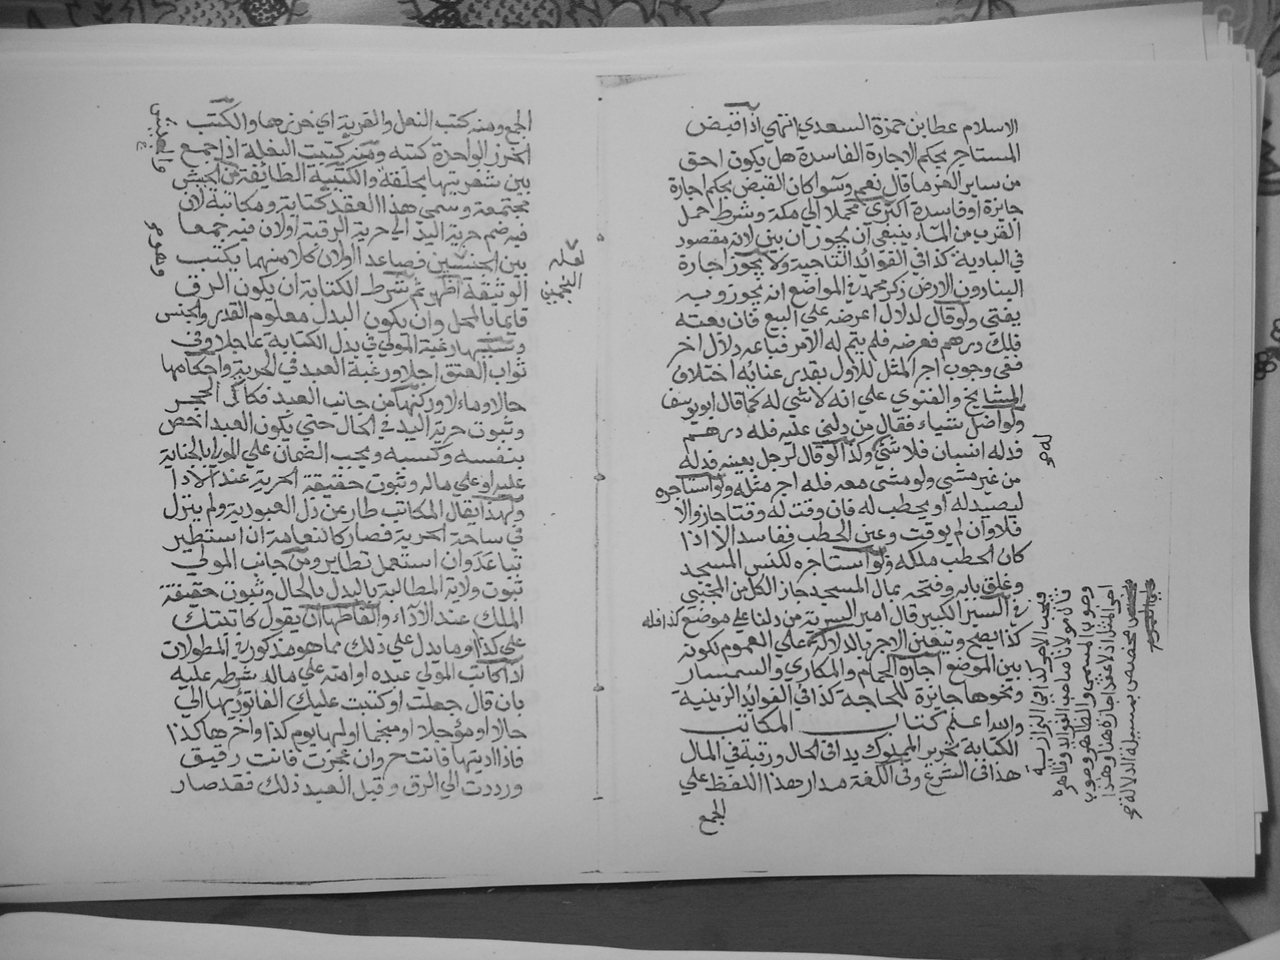 الاسلام عطا بن حمزة السعدي انتهي اذا قبض
المستاجر بحكم الاجارة الفاسدة هل يكون احق
من ساير الغرما قال نعم وسوا كان القبض بحكم اجارة
جايزة او فاسدة اكتري محملا الي مكة وشرط حمل
القرب من الماء ينبغي ان يجوز ان بين لانه مقصود
في البادية كذا في الفوائد التاجية ولا يجوز اجارة
البنا دون الارض ذكر محمد في المواضع انه يجوز وبه
يفتي ولو قال لدلال اعرضه علي البيع فان بعته
فلك درهم فعرضه فلم يتم له الامر فباعه دلال اخر
ففي وجوب اجر المثل للاول بقدر عنائه اختلاف
المشايخ والفتوي علي انه لا شي له كما قال ابو يوسف
ولو اضل شياء فقال من دلني عليه فله درهم
فدله انسان فلا شي وكذا لو قال لرجل بعينه فدله
من غير مشي ولو مشي معه فله اجر مثله ولو استاجره
ليصيد له او يحطب له فان وقت له وقتا جاز والا
فلا وان لم يوقت وعين الحطب ففاسد الا اذا
كان الحطب ملكه ولو استاجره لكنس المسجد
وغلق بابه وفتحه بمال المسجد جاز الكل من المجتبي
في السير الكبير قال امير السرية من دلنا علي موضع كذا فله
كذا يصح ويتعين الاجر بالدلالة علي العموم لكونه
بين الموضع اجارة الحمام والمكاري والسمسار
ونحوها جايزة للحاجة كذا في الفوائد الزينية
والله اعلم كتاب المكاتب
الكتابة تحرير المملوك يدا في الحال ورقبة في المال
هذا في الشرع وفي اللغة مدار هذا اللفظ علي
الجمع
فيجب الاجر كذا في البزازية
قال مولانا صاحب الفوائد وظاهره
وجوب المسمي والظاهر وجوب
اجر المثل اذ لا عقد اجارة هنا وهذا
مخصص لمسيلة الدلالة
الجمع ومنه كتب النعل والقربة اي خرزها والكتب
الخرز الواحدة كتبه ومنه كتبت البغلة اذا جمع
بين شفريتها بحلقة والكتيبة الطايفة من الجيش
مجتمعة وسمي هذا العقد كتابة ومكاتبة لان
فيه ضم حرية اليد الي حرية الرقبة او لان فيه جمعا
بين الجنسين فصاعدا او لان كلا منهما يكتب
الوثيقة اظهر ثم شرط الكتابة ان يكون الرق
قايما بالمحل وان يكون البدل معلوم القدر والجنس
وسببها رغبة المولي في بدل الكتابة عاجلا وفي
ثواب العتق اجلا ورغبة العبد في الحرية واحكامها
حالا وماءلا وركنها من جانب العبد فكاك الحجر
وثبوت حرية اليد في الحال حتي يكون العبد اخص
بنفسه وكسبه ويجب الضمان علي المولي بالجناية
عليه او علي ماله وثبوت حقيقة الحرية عند الادا
ولهذا يقال المكاتب طار عن ذل العبودية ولم ينزل
في ساحة الحرية فصار كالنعامة ان استطير
تباعد وان استعمل تطاير ومن جانب المولي
ثبوت ولاية المطالبة بالبدل بالحال وثبوت حقيقة
الملك عند الاداء والفاظها ان يقول كاتبتك
علي كذا او ما يدل علي ذلك مما هو مذكور في المطولات
اذا كاتب المولي عبده او امته علي مال شرطه عليه
بان قال جعلت او كتبت عليك الفا تؤديها الي
حالا او مؤجلا او منجما اولها يوم كذا واخرها كذا
فاذا اديتها فانت حر وان عجزت فانت رقيق
ورددت الي الرق وقبل العبد ذلك فقد صار